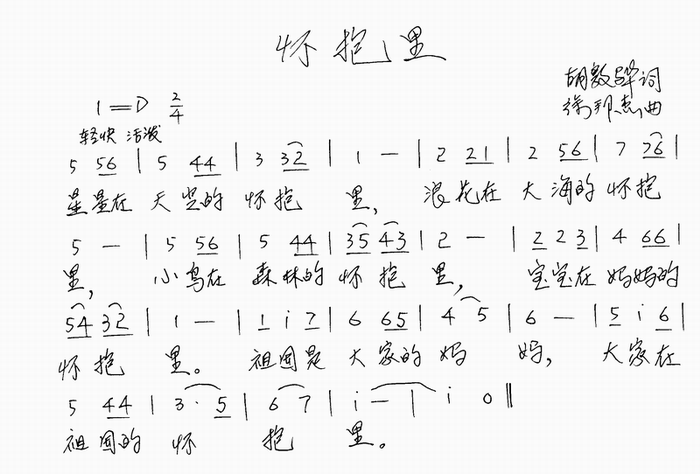 怀抱里
胡敦骅词
1=D 2/4
徐邦杰曲
轻快 活泼
5 56 | 5 44 | 3 32 | 1 — | 2 21 | 2 56 | 7 26 |
星星在 天空的 怀抱 里, 浪花在 大海的 怀抱
5 — | 5 56 | 5 44 | 35 43 | 2 — | 2 2 3 | 4 66 |
里, 小鸟在 森林的 怀抱 里, 宝宝在 妈妈的
54 32 | 1 — | 1 i 7 | 6 65 | 4 5 | 6 — | 5 i 6 |
怀抱 里。 祖国是 大家的 妈 妈, 大家在
5 44 | 3· 5 | 6 7 | i — | i 0 ‖
祖国的 怀 抱 里。